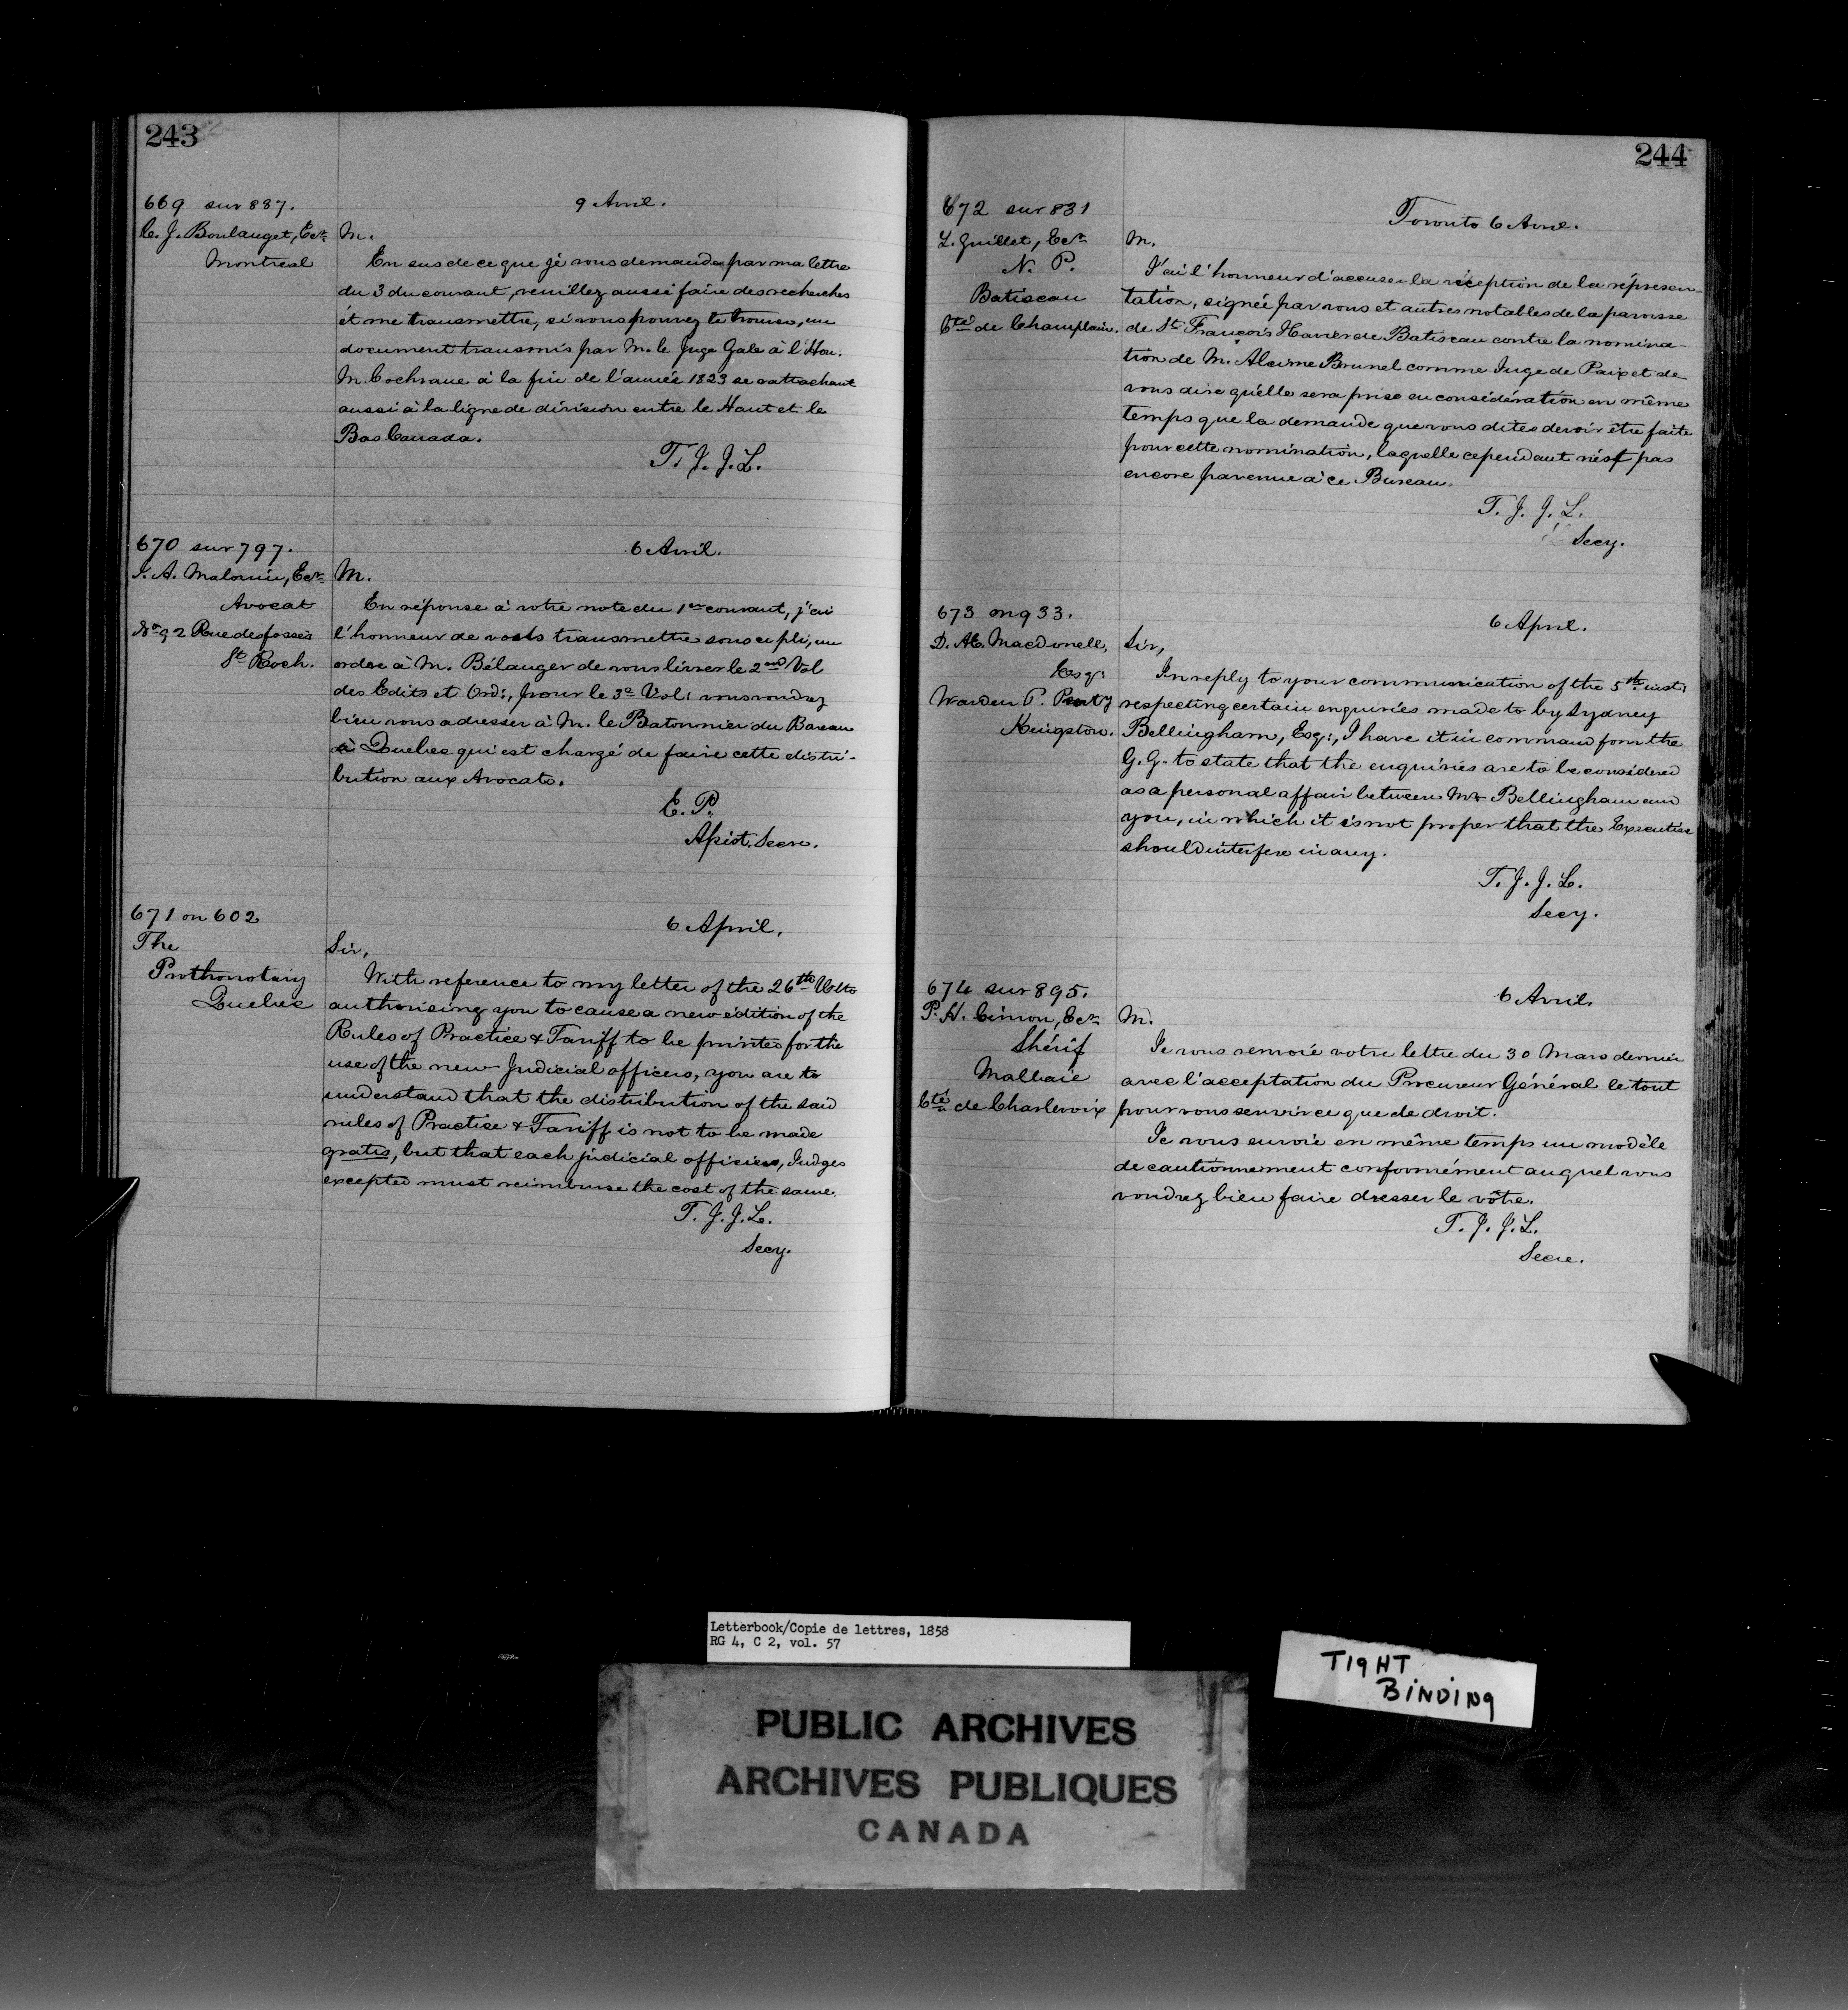 243
669 sur 887.
C. J. Boulanget, Ecr.
Montreal
9 Avril.
M.
En sus de ce que je vous demande par ma lettre
du 3 du courant, veuillez aussi faire des recherches
et me transmettre, si vous pouvez le trouver, un
document transmis par M. le Juge Gale à l'Hon.
M. Cochrane à la fin de l'année 1823 se rattachant
aussi à la ligne de division entre le Haut et le
Bas Canada.
T. J. J. L.
670 sur 797.
J. A. Malouin, Ecr.
Avocat
No. 92 Rue desfossés
St. Roch.
6 Avril.
M.
En réponse à votre note du 1er courant, j'ai
l'honneur de vous transmettre sous ce pli, un
ordre à M. Bélanger de vous livrer le 2nd Vol
des Edits et Ord:, pour le 3e Vol: vous voudrez
bien vous adresser à M. le Batonnier du Bareau
à Quebec qui est chargé de faire cette distri-
bution aux Avocats.
E. P.
Assist. Secre.
671 on 602
The
Prothonotary
Quebec
6 April.
Sir,
With reference to my letter of the 26th Ulto
authorising you to cause a new edition of the
Rules of Practice & Tariff to be printed for the
use of the new Judicial officers, you are to
understand that the distribution of the said
rules of Practice & Tariff is not to be made
gratis, but that each judicial officiers, Judges
excepted must reimburse the cost of the same.
T. J. J. L.
Secy.
244
672 sur 831
L. Guillet, Ecr.
N. P.
Batiscan
Cté de Champlain.
Toronto 6 Avril.
M.
J'ai l'honneur d'accuser la réception de la représen-
tation, signée par vous et autres notables de la paroisse
de St. François Xavier de Batiscan contre la nomina-
tion de M. Alcime Brunel comme Juge de Paix et de
vous dire qu'elle sera prise en considération en même
temps que la demande que vous dites devoir être faite
pour cette nomination, laquelle cependant n'est pas
encore parvenue à ce Bureau.
T. J. J. L.
Secy.
673 on 933.
D. Æ. Macdonell,
Esqr:
Warden P. Penty
Kingston.
6 April.
Sir,
In reply to your communication of the 5th inst:
respecting certain enquiries made to by Sydney
Bellingham, Esq:, I have it in command from the
G. G. to state that the enquiries are to be considered
as a personal affair between Mr Bellingham and
you, in which it is not proper that the Executive
should interfere in any.
T. J. J. L.
Secy.
674 sur 895.
P. H. Cimon, Ecr.
Shérif
Malbaie
Cté de Charlevoix
6 Avril.
M.
Je vous renvoie votre lettre du 30 Mars dernier
avec l'acceptation du Procureur Général le tout
pour vous servir ce que de droit.
Je vous envoie en même temps un modèle
de cautionnement conformément auquel vous
voudrez bien faire dresser le vôtre.
T. J. J. L.
Secre.
Letterbook/Copie de lettres, 1858
RG 4, C 2, vol. 57
TIGHT
BINDING
PUBLIC ARCHIVES
ARCHIVES PUBLIQUES
CANADA